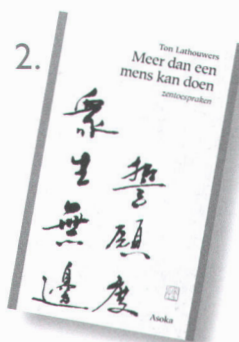 2.
Ton Lathouwers
Meer dan een
mens kan doen
zentoespraken
衆生無邊
誓願度
Asoka